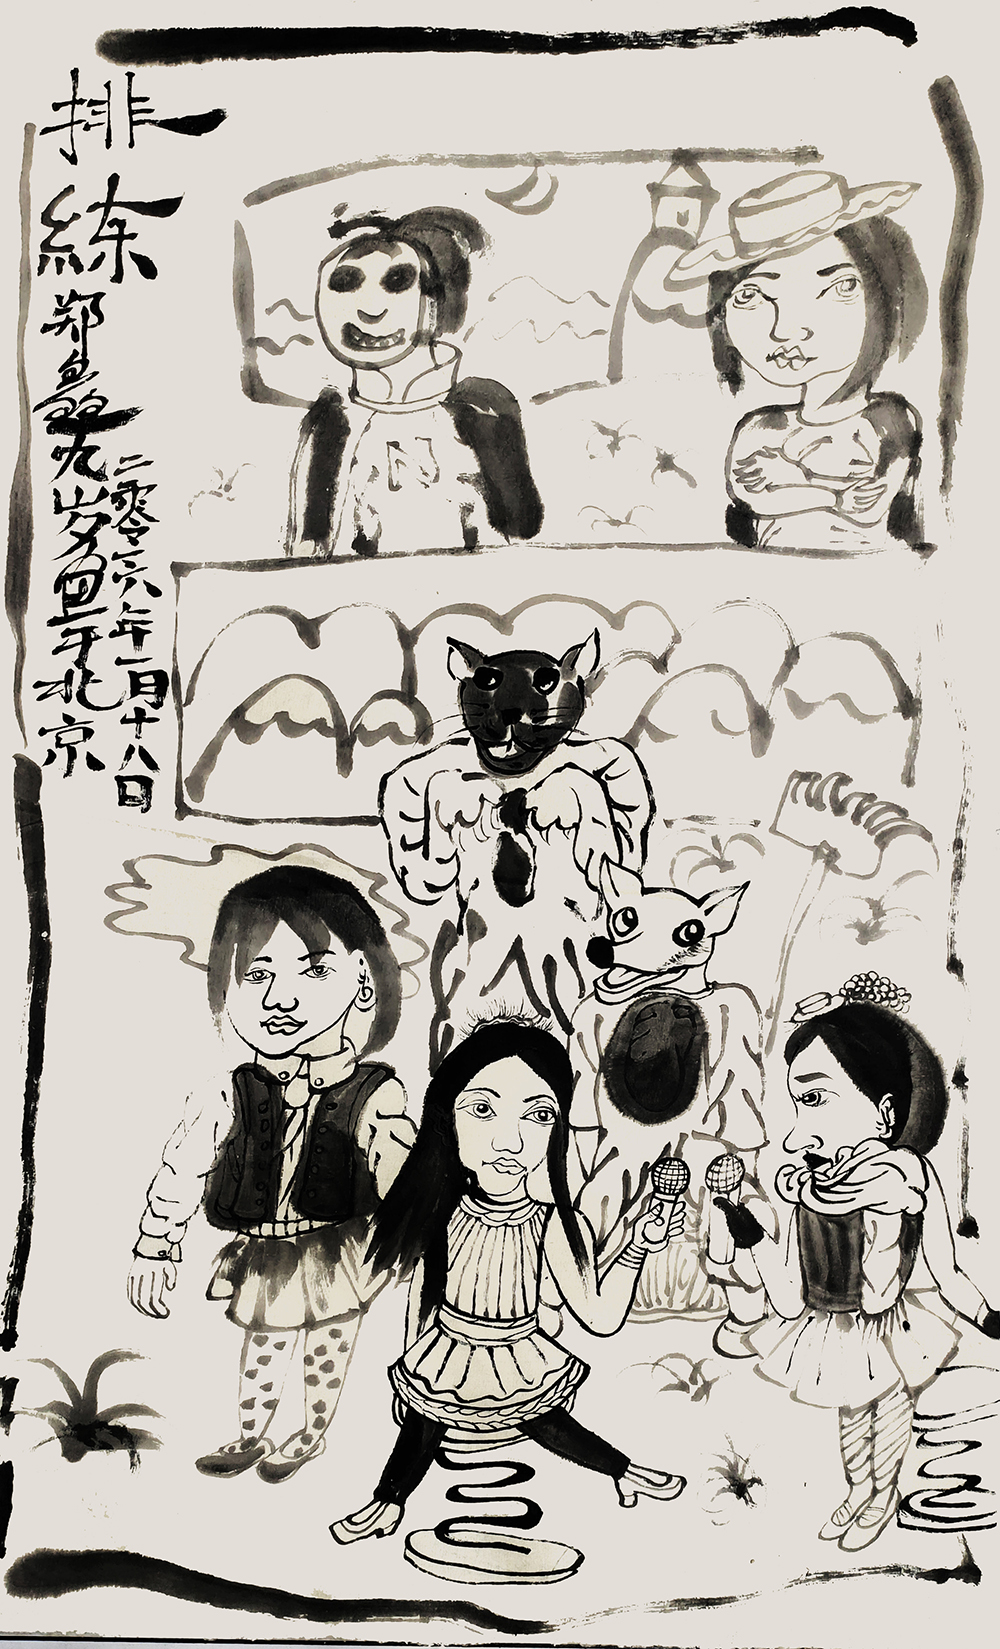 排练
郑蠡九岁画于北京
二零一六年一月十八日